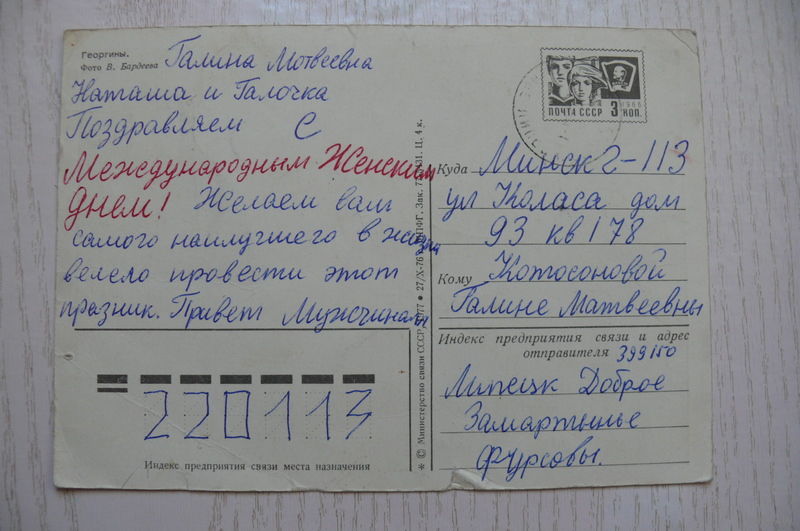 Георгины.
Фото В. Бардеева
Галина Мотвеевна
Наташа и Галочка
Поздравляем С
Международным Женским
Днем! Желаем вам
самого наилучшего в жизни
велело провести этот
празник. Привет Мужчинам
ПОЧТА СССР 3 КОП.
1966
Куда Минск г-113
ул Коласа дом
93 кв 178
Кому Котосоновой
Галине Матвеевны
Индекс предприятия связи и адрес
отправителя 399150
Липецк Доброе
Замартынье
Фурсовы.
220113
Индекс предприятия связи места назначения
* © Министерство связи СССР, 27/X-76 Ц. 4 к.